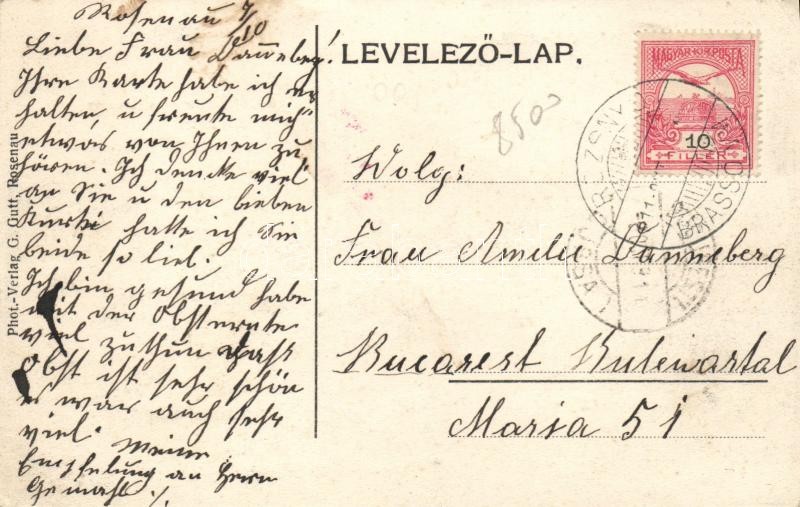 Rosenau 7/10
Liebe Frau Danneberg!
Ihre Karte habe ich er
halten, u freute mich
etwas von Ihnen zu
hören. Ich dencke viel
an Sie u den lieben
Kurti hatte ich Sie
beide so lieb.
Ich bin gesund habe
mit der Obsternte
viel zuthun
Obst ist sehr schön
es war auch sehr
viel. Meine
Empfelung an Herrn
Gemahl
Phot.-Verlag G. Gutt, Rosenau
LEVELEZŐ-LAP.
8500
MAGYAR KIR. POSTA
10
FILLÉR
BRASSÓ
Wolg:
Frau Amelie Danneberg
Bucarest Bulewartal
Maria 51